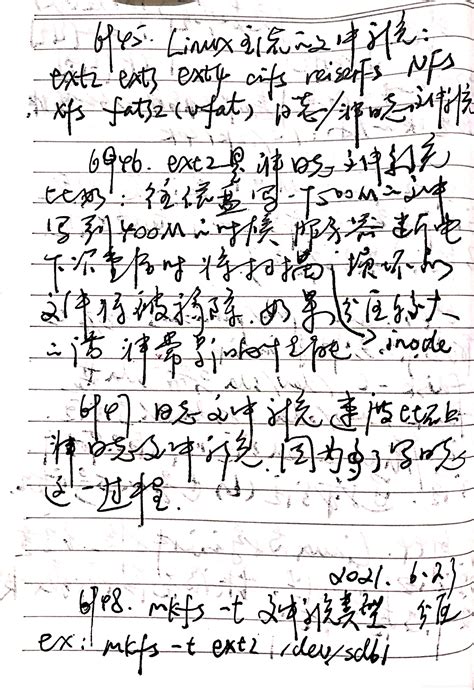 6945. Linux系统的文件系统：
ext2 ext3 ext4 cifs reiserfs NFS
xfs fat32(vfat) 日志/非日志文件系统
6946. ext2是非日志文件系统
比如：往磁盘写一个500M的文件
写到400M的时候服务器断电
下次重启时将扫描 损坏的
文件将被移除.如果分区较大
的话 非常影响性能. inode
6947.日志文件系统 速度比不上
非日志文件系统.因为多了写日志
这一过程.
2021. 6.23
6948. mkfs -t 文件系统类型 分区
ex: mkfs -t ext2 /dev/sdb1